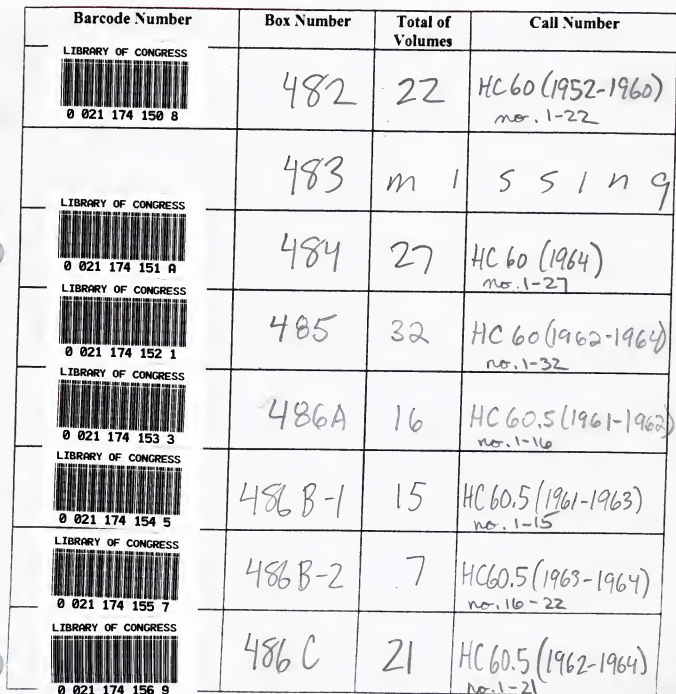 Barcode Number Box Number Total of Volumes Call Number
LIBRARY OF CONGRESS
0 021 174 150 8
482 22 HC60 (1952-1960)
no. 1-22
483 missing
LIBRARY OF CONGRESS
0 021 174 151 A
484 27 HC 60 (1964)
no. 1-27
LIBRARY OF CONGRESS
0 021 174 152 1
485 32 HC 60 (1962-1964)
no. 1-32
LIBRARY OF CONGRESS
0 021 174 153 3
486A 16 HC 60.5 (1961-1962)
no. 1-16
LIBRARY OF CONGRESS
0 021 174 154 5
486 B-1 15 HC 60.5 (1961-1963)
no. 1-15
LIBRARY OF CONGRESS
0 021 174 155 7
486 B-2 7 HC60.5 (1963-1964)
no. 16-22
LIBRARY OF CONGRESS
0 021 174 156 9
486 C 21 HC 60.5 (1962-1964)
no. 1-21